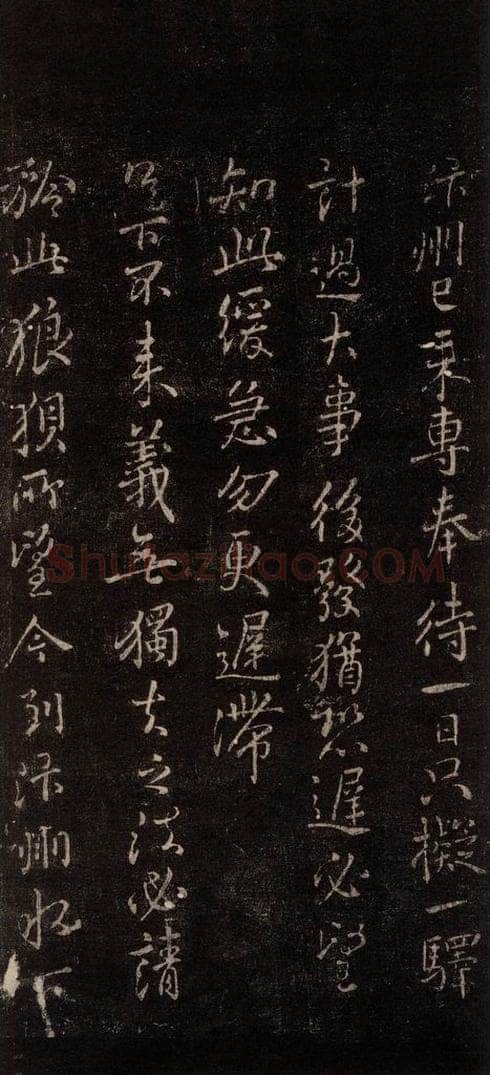 汴州已来專奉待一日只擬一驛
計過大事後發猶恐遲必望
知此緩急勿更遲滯
足下不来義無獨去之法必請
矜此狼狽所望今到汴州水下